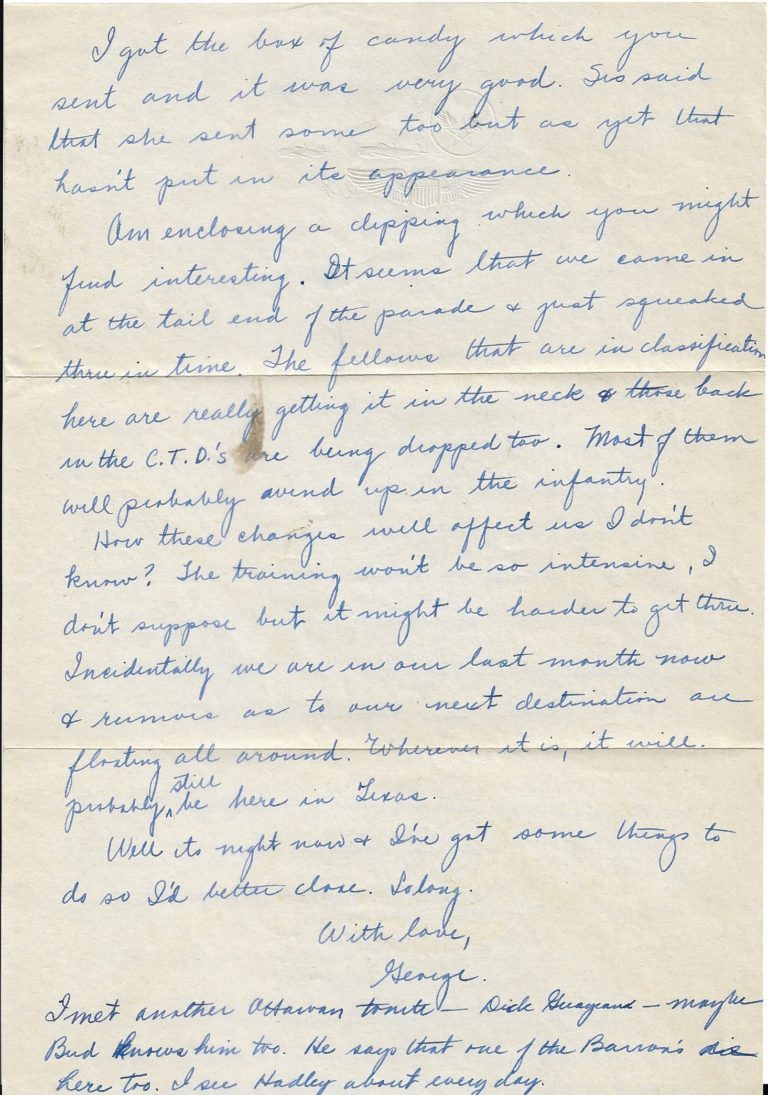 I got the box of candy which you
sent and it was very good. Sis said
that she sent some too but as yet that
hasn't put in its appearance.
Am enclosing a clipping which you might
find interesting. It seems that we came in
at the tail end of the parade & just squeaked
thru in time. The fellows that are in classification
here are really getting it in the neck & those back
in the C.T.D.'s are being dropped too. Most of them
will probably wind up in the infantry.
How these changes will affect us I don't
know? The training won't be so intensive, I
don't suppose but it might be harder to get thru.
Incidentally we are in our last month now
& rumors as to our next destination are
floating all around. Wherever it is, it will
probably still be here in Texas.
Well its night now & I've got some things to
do so I'd better close. So long.
With love,
George.
I met another Ottawan tonite — Dick — maybe
Bud knows him too. He says that one of the Barron's is
here too. I see Hadley about every day.